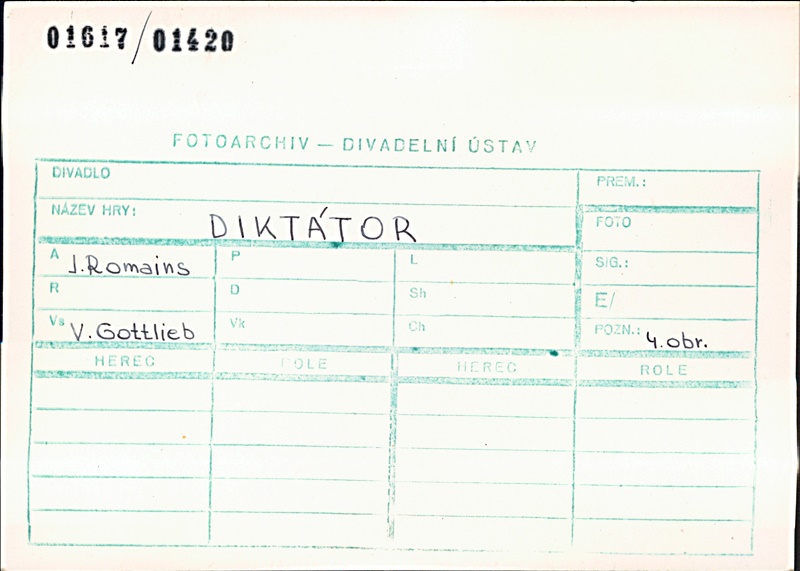 01617/01420
FOTOARCHIV — DIVADELNÍ ÚSTAV
DIVADLO
PREM.:
NÁZEV HRY: DIKTÁTOR
FOTO
A J.Romains P L SIG.:
R D Sh E/
Vs V. Gottlieb Vk Ch POZN.: 4.obr.
HEREC ROLE HEREC ROLE